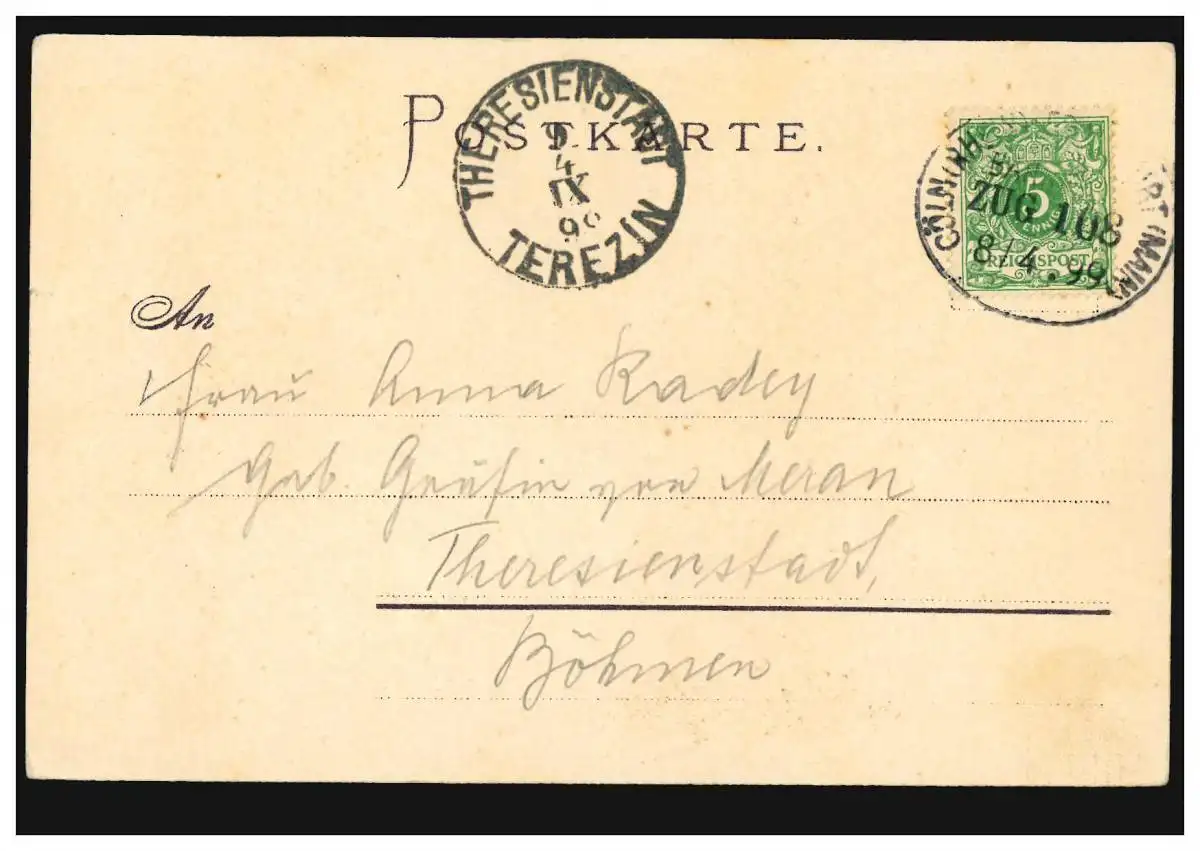 POSTKARTE.
THERESIENSTADT
9
4
IX
99
TEREZÍN
5
REICHSPOST
CÖLN (RH
ZUG 108
8/4.99
RT (MAIN)
An
Frau Anna Radey
Geb. Gräfin von Meran
Theresienstadt,
Böhmen